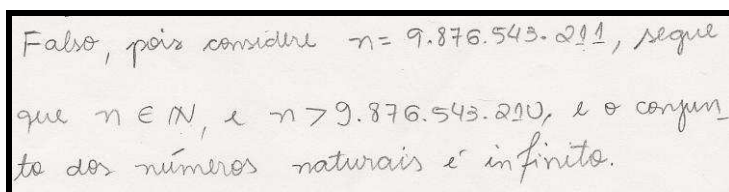 Falso, pois considere n = 9.876.543.211, segue
que n ∈ ℕ, e n > 9.876.543.210, e o conjun_
to dos números naturais é infinito.